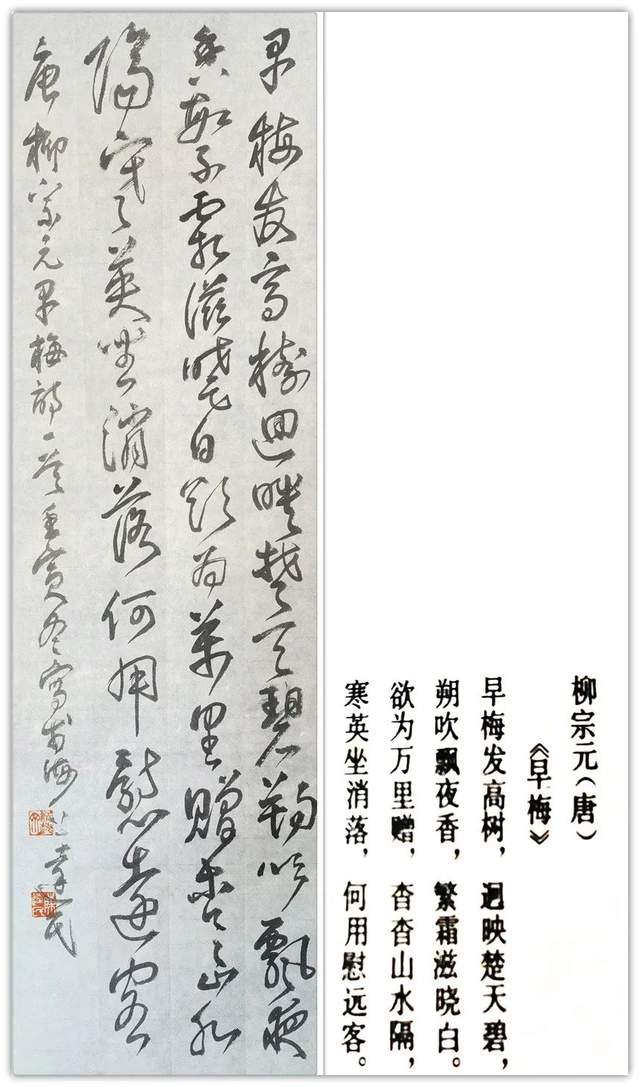 早梅發高樹迥映楚天碧朔吹飄夜
香繁霜滋曉白欲為萬里贈杳杳山水
隔寒英坐消落何用慰遠客
唐柳宗元早梅詩一首壬寅冬寫於海上
柳宗元（唐）
《早梅》
早梅发高树，迥映楚天碧，
朔吹飘夜香，繁霜滋晓白。
欲为万里赠，杳杳山水隔，
寒英坐消落，何用慰远客。